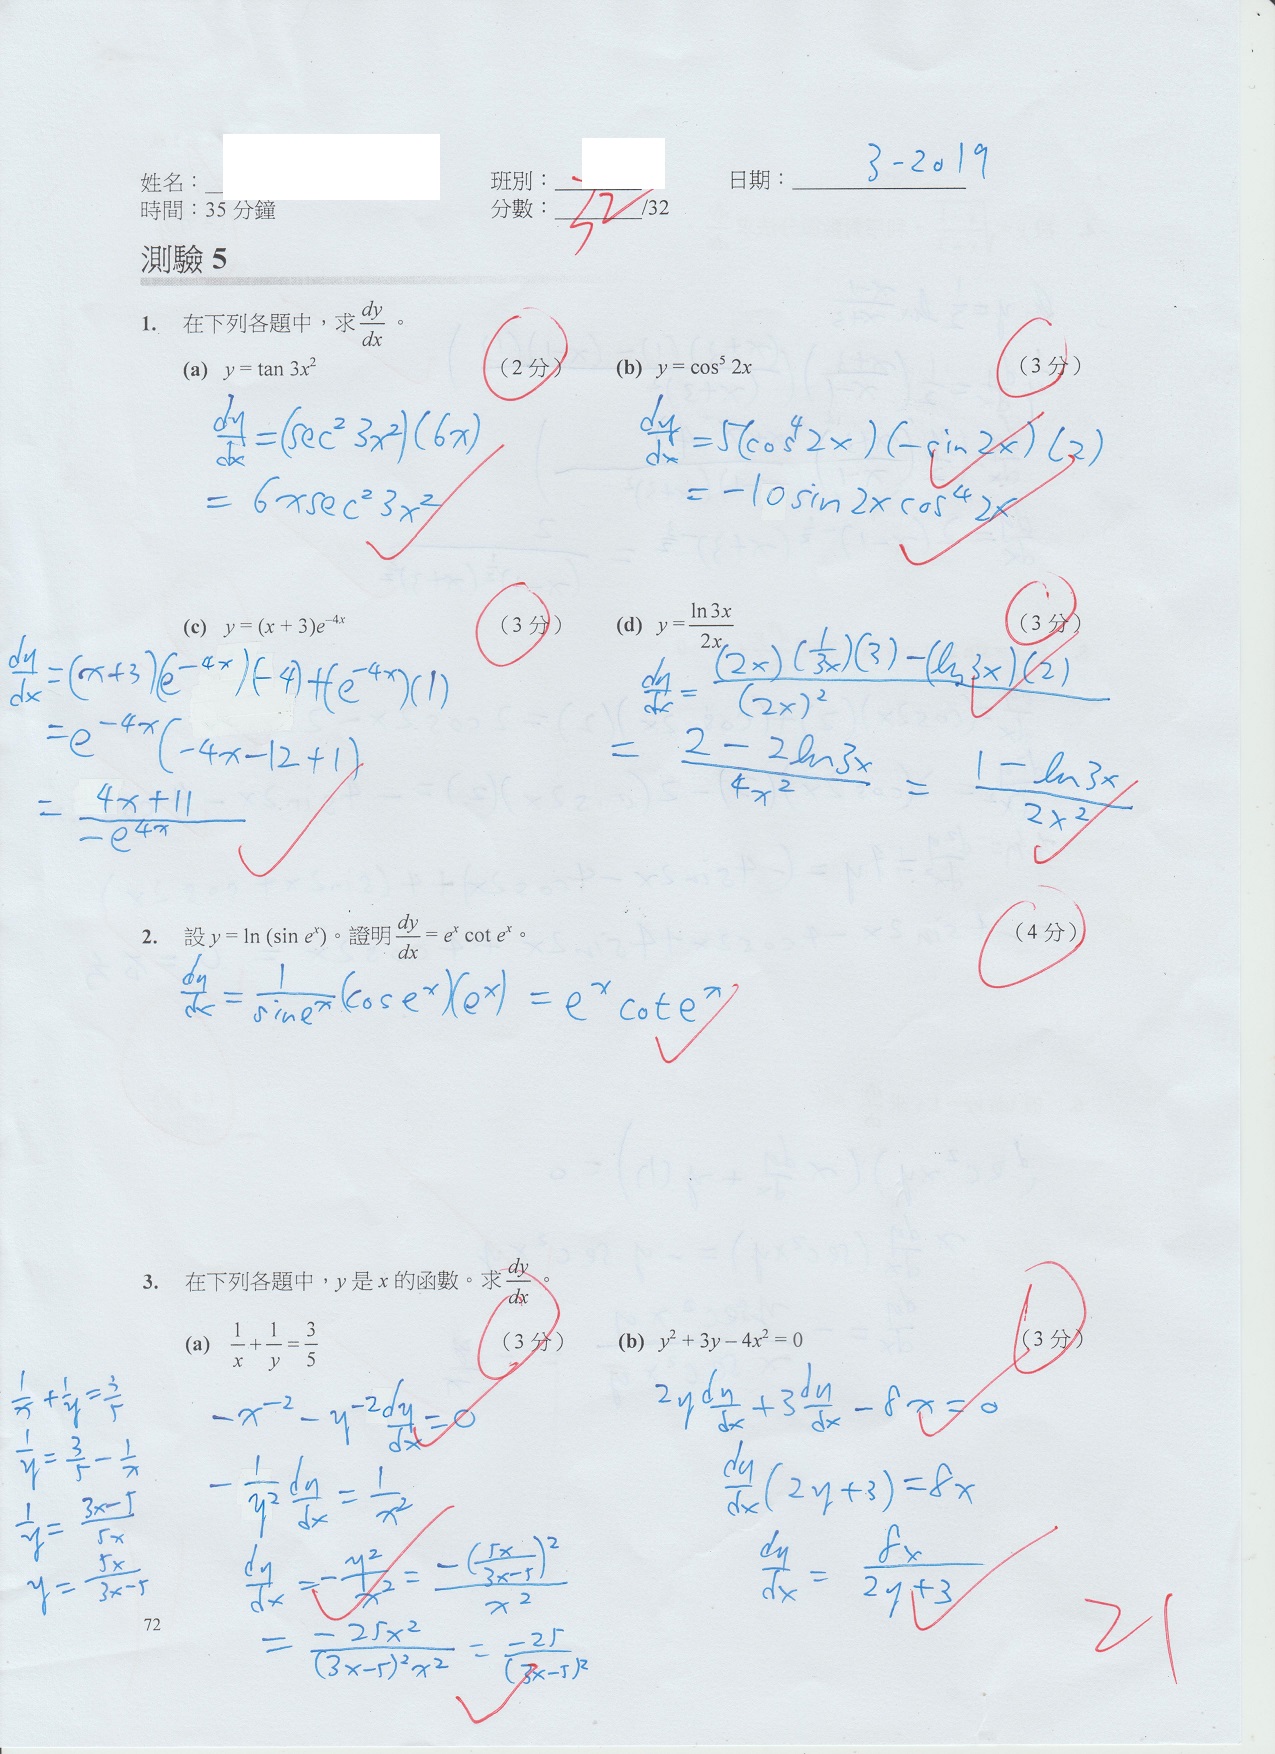 姓名：
班別：
日期：3-2019
時間：35 分鐘
分數：32/32
測驗 5
1. 在下列各題中，求 dy/dx。
(a) y = tan 3x² （2 分）
dy/dx = (sec² 3x²)(6x)
= 6x sec² 3x²
(b) y = cos⁵ 2x （3 分）
dy/dx = 5(cos⁴ 2x)(-sin 2x)(2)
= -10 sin 2x cos⁴ 2x
(c) y = (x + 3)e⁻⁴ˣ （3 分）
dy/dx = (x+3)(e⁻⁴ˣ)(-4) + (e⁻⁴ˣ)(1)
= e⁻⁴ˣ(-4x-12+1)
= (4x+11)/(-e⁴ˣ)
(d) y = ln 3x / 2x （3 分）
dy/dx = ((2x)(1/3x)(3) - (ln 3x)(2))/(2x)²
= (2 - 2 ln 3x)/4x² = (1 - ln 3x)/2x²
2. 設 y = ln (sin eˣ)。證明 dy/dx = eˣ cot eˣ。 （4 分）
dy/dx = 1/(sin eˣ) (cos eˣ)(eˣ) = eˣ cot eˣ
3. 在下列各題中，y 是 x 的函數。求 dy/dx。
(a) 1/x + 1/y = 3/5 （3 分）
1/x + 1/y = 3/5
1/y = 3/5 - 1/x
1/y = (3x-5)/5x
y = 5x/(3x-5)
-x⁻² - y⁻² dy/dx = 0
-1/y² dy/dx = 1/x²
dy/dx = -y²/x² = -(5x/(3x-5))²/x²
= -25x²/((3x-5)²x²) = -25/(3x-5)²
(b) y² + 3y – 4x² = 0 （3 分）
2y dy/dx + 3 dy/dx - 8x = 0
dy/dx (2y+3) = 8x
dy/dx = 8x/(2y+3)
72
21